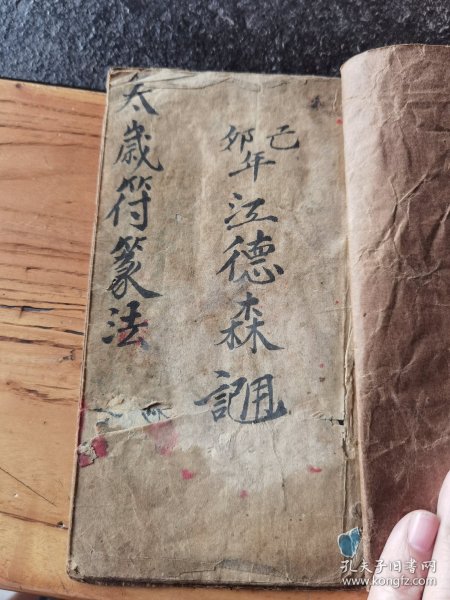 己卯年江德森記用
太歲符篆法
孔夫子旧书网
www.kongfz.com